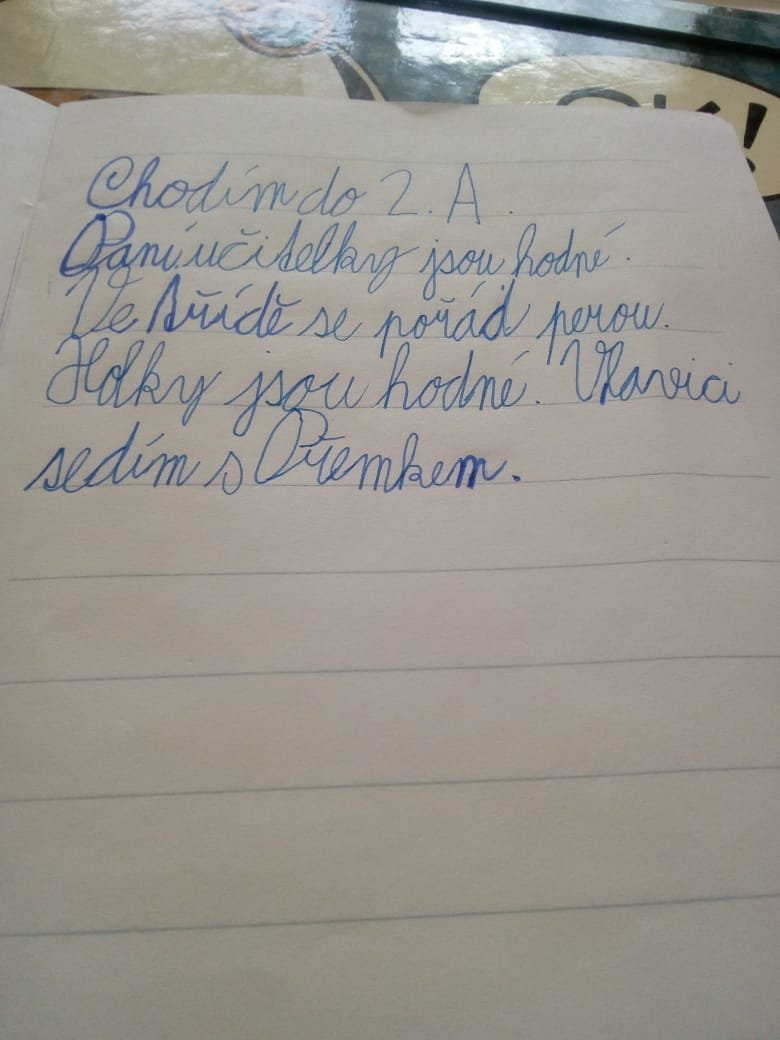 OK!
Chodím do 2. A.
Paní učitelky jsou hodné.
Ve třídě se pořád perou.
Holky jsou hodné. Vlavici
sedím s Přemkem.